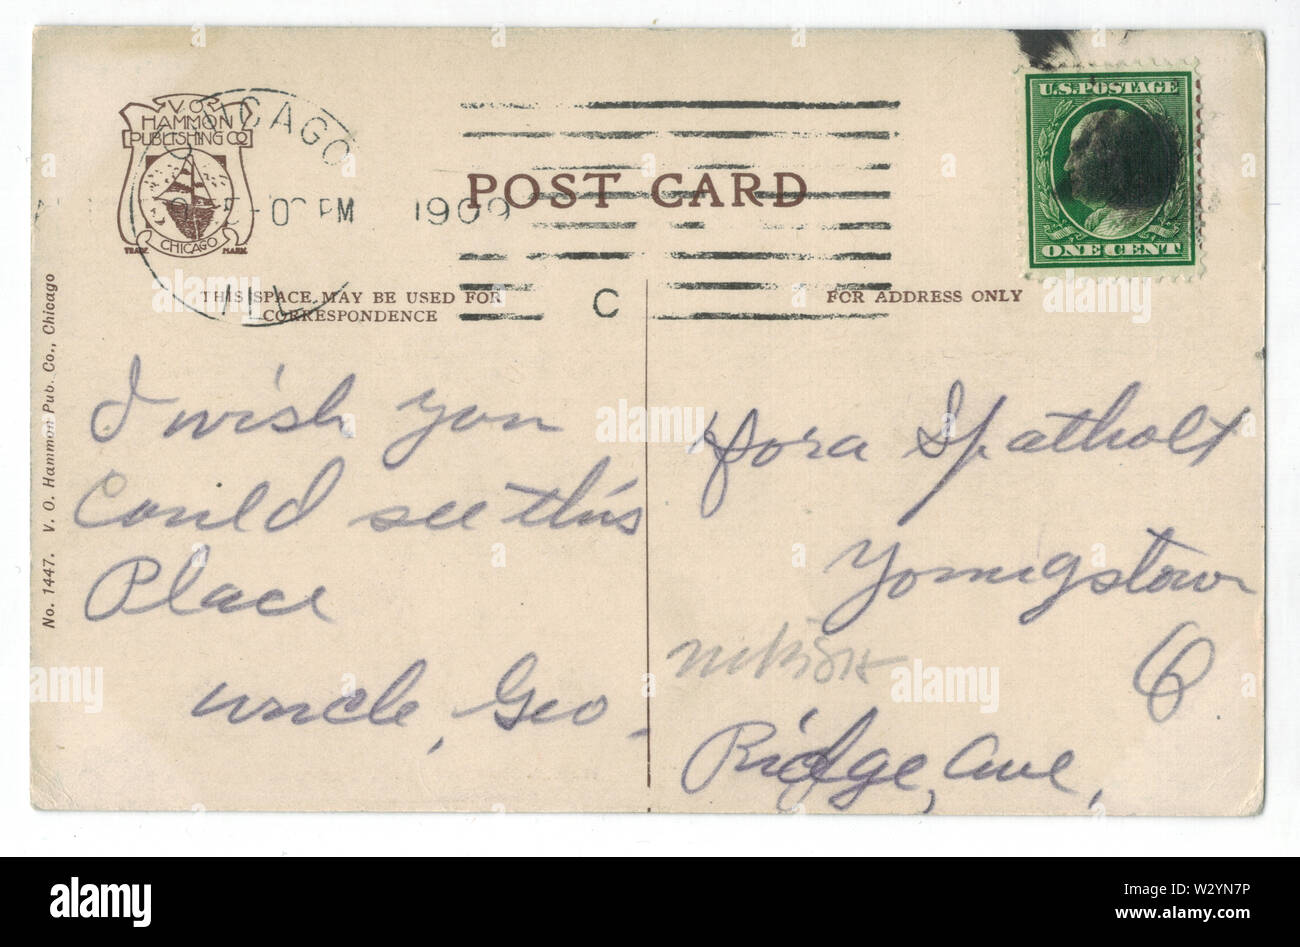 V.O.
HAMMON
PUBLISHING CO
CHICAGO
TRADE MARK
CHICAGO
PM 1909
ILL
C
POST CARD
U.S. POSTAGE
ONE CENT
THIS SPACE MAY BE USED FOR
CORRESPONDENCE
FOR ADDRESS ONLY
No. 1447. V. O. Hammon Pub. Co., Chicago
I wish you
Could see this
Place
uncle, Geo.
Spatholt
Youngstown
O
Ridge, Ave,
alamy
Image ID: W2YN7P
www.alamy.com